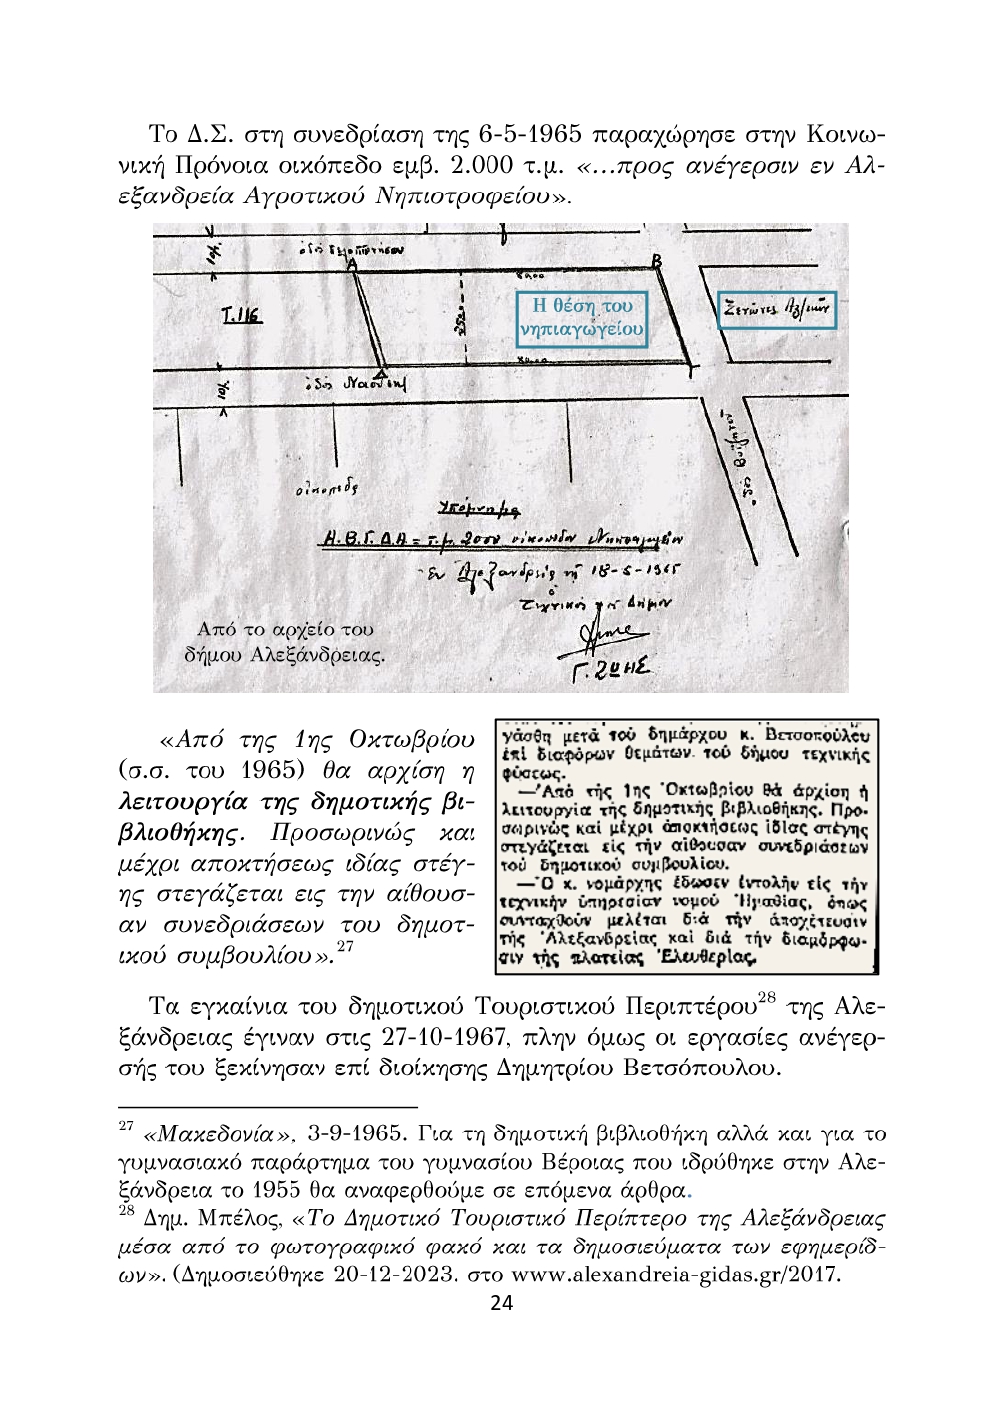 Το Δ.Σ. στη συνεδρίαση της 6-5-1965 παραχώρησε στην Κοινω-
νική Πρόνοια οικόπεδο εμβ. 2.000 τ.μ. «…προς ανέγερσιν εν Αλ-
εξανδρεία Αγροτικού Νηπιοτροφείου».
Α
Β
Τ.116
Η θέση του
νηπιαγωγείου
Ξενώνες
Δ
Γ
οδός Ναούσης
Υπόμνημα
Α.Β.Γ.Δ.Α = τ.μ. 2000 οικόπεδον Νηπιαγωγείου
Εν Αλεξανδρεία τη 18-5-1965
ο
Τεχνικός του Δήμου
Γ. ΖΩΗΣ
Από το αρχείο του
δήμου Αλεξάνδρειας.
«Από της 1ης Οκτωβρίου
(σ.σ. του 1965) θα αρχίση η
λειτουργία της δημοτικής βι-
βλιοθήκης. Προσωρινώς και
μέχρι αποκτήσεως ιδίας στέγ-
ης στεγάζεται εις την αίθουσ-
αν συνεδριάσεων του δημοτ-
ικού συμβουλίου».27
γάσθη μετά τοῦ δημάρχου κ. Βετσοπούλου
ἐπί διαφόρων θεμάτων τοῦ δήμου τεχνικῆς
φύσεως.
—Ἀπό τῆς 1ης Ὀκτωβρίου θά ἀρχίση ἡ
λειτουργία τῆς δημοτικῆς βιβλιοθήκης. Προ-
σωρινῶς καί μέχρι ἀποκτήσεως ἰδίας στέγης
στεγάζεται εἰς τήν αἴθουσαν συνεδριάσεων
τοῦ δημοτικοῦ συμβουλίου.
—Ὁ κ. νομάρχης ἔδωσεν ἐντολήν εἰς τήν
τεχνικήν ὑπηρεσίαν νομοῦ Ἡμαθίας, ὅπως
συνταχθοῦν μελέται διά τήν ἀποχέτευσιν
τῆς Ἀλεξανδρείας καί διά τήν διαμόρφω-
σιν τῆς πλατείας Ἐλευθερίας.
Τα εγκαίνια του δημοτικού Τουριστικού Περιπτέρου28 της Αλε-
ξάνδρειας έγιναν στις 27-10-1967, πλην όμως οι εργασίες ανέγερ-
σής του ξεκίνησαν επί διοίκησης Δημητρίου Βετσόπουλου.
27 «Μακεδονία», 3-9-1965. Για τη δημοτική βιβλιοθήκη αλλά και για το
γυμνασιακό παράρτημα του γυμνασίου Βέροιας που ιδρύθηκε στην Αλε-
ξάνδρεια το 1955 θα αναφερθούμε σε επόμενα άρθρα.
28 Δημ. Μπέλος, «Το Δημοτικό Τουριστικό Περίπτερο της Αλεξάνδρειας
μέσα από το φωτογραφικό φακό και τα δημοσιεύματα των εφημερίδ-
ων». (Δημοσιεύθηκε 20-12-2023. στο www.alexandreia-gidas.gr/2017.
24